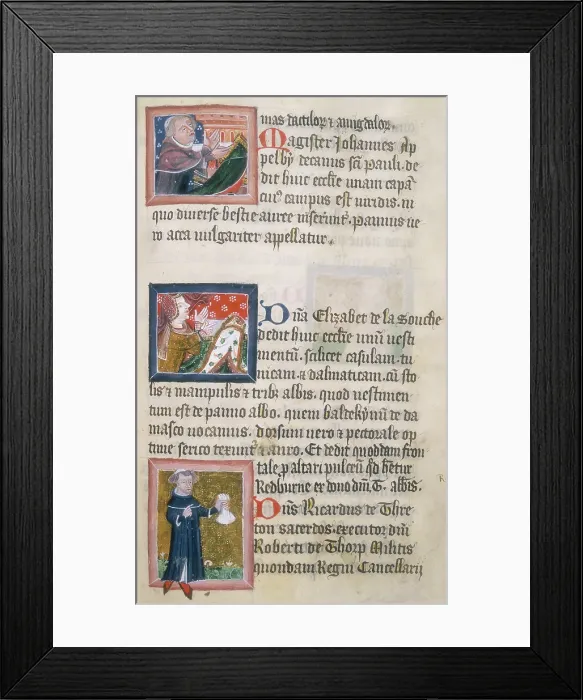 mas dactilor̃ ⁊ amigdalor̃.
Magister Johannes Ap
pelby decanus sc̃i pauli. de
dit huic eccłie unam capã
cui᷒ campus est viridis. in
quo diuerse bestie auree inserunt̃. pannus ue
ro acca uulgariter appellatur.
Dñа Elizabet de la Souche
dedit huic eccłie unũ uesti
mentũ. scilicet casulam. tu
nicam. ⁊ dalmaticam. cũ sto
lis ⁊ manipulis ⁊ trib᷒ albis. quod uestimen
tum est de panno albo. quem baltekynũ de da
masco uocamus. dorsum uero ⁊ pectorale op
time serico texunt᷒ ⁊ auro. Et dedit quoddam fron
tale ꝑ altari pulcrũ qd̃ hẽtur
Redburne ex dono dñi T. abb̃is.
Dñs Ricardus de Thre
ton sacerdos. executor dñi
Roberti de Thorp Militis
quondam Regni Cancellarij